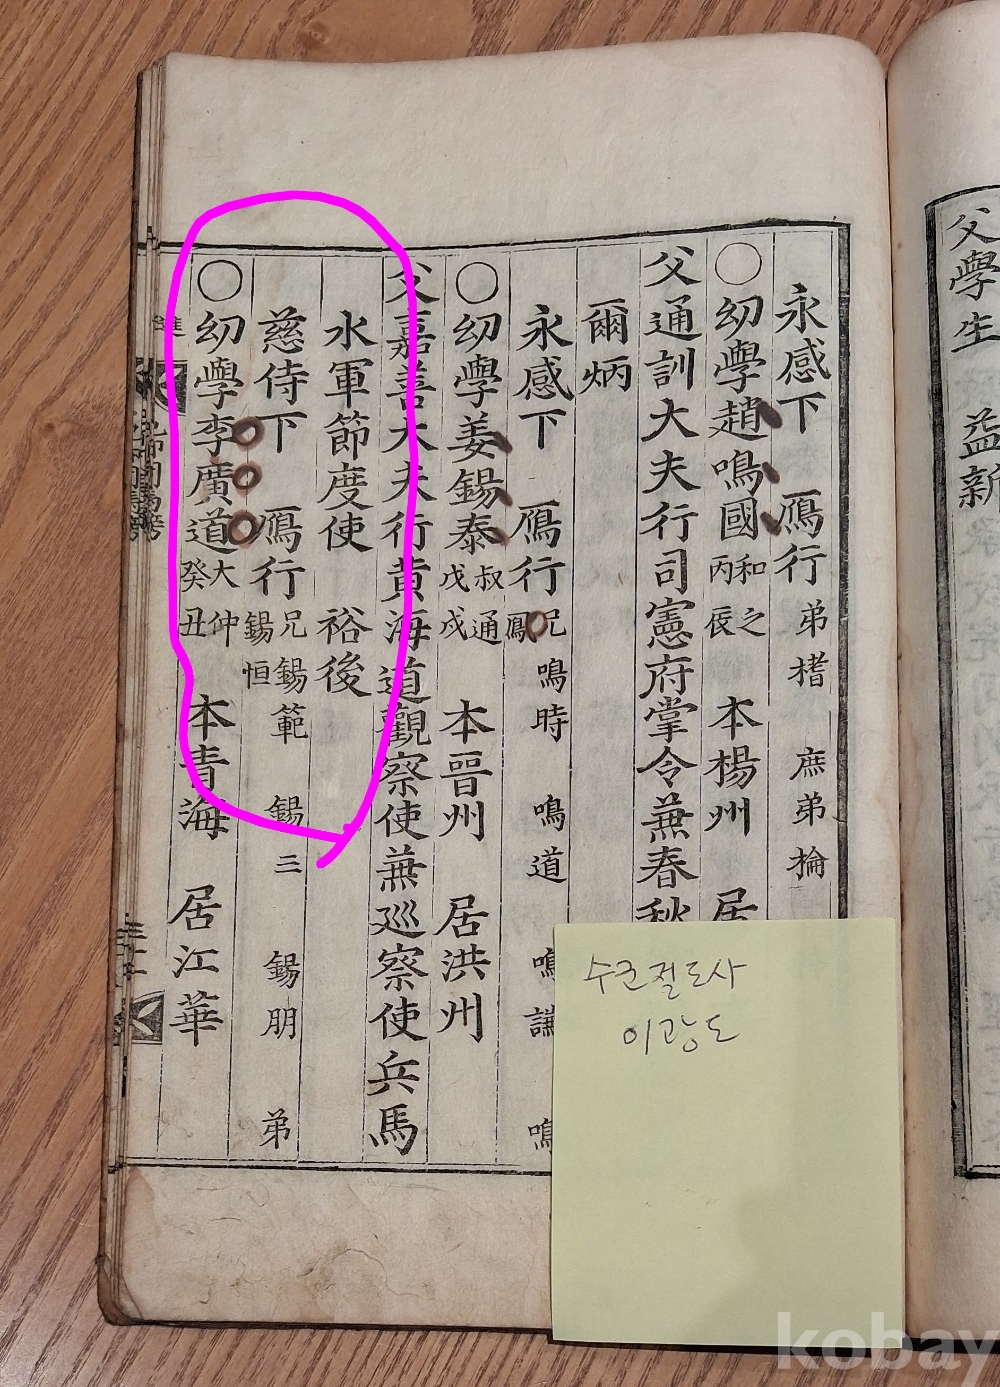 父學生 益新
永感下 鴈行 弟楷 庶弟掄
幼學趙鳴國 和之 丙辰 本楊州 居
父通訓大夫行司憲府掌令兼春秋
爾炳
永感下 鴈行 兄鳳鳴 鳴時 鳴道 鳴謙 鳴
幼學姜錫泰 叔通 戊戌 本晉州 居洪州
父嘉善大夫行黃海道觀察使兼巡察使兵馬
水軍節度使 裕後
慈侍下 鴈行 兄錫範 錫三 錫朋 弟錫恒
幼學李廣道 大仲 癸丑 本青海 居江華
수군절도사
이광도
kobay